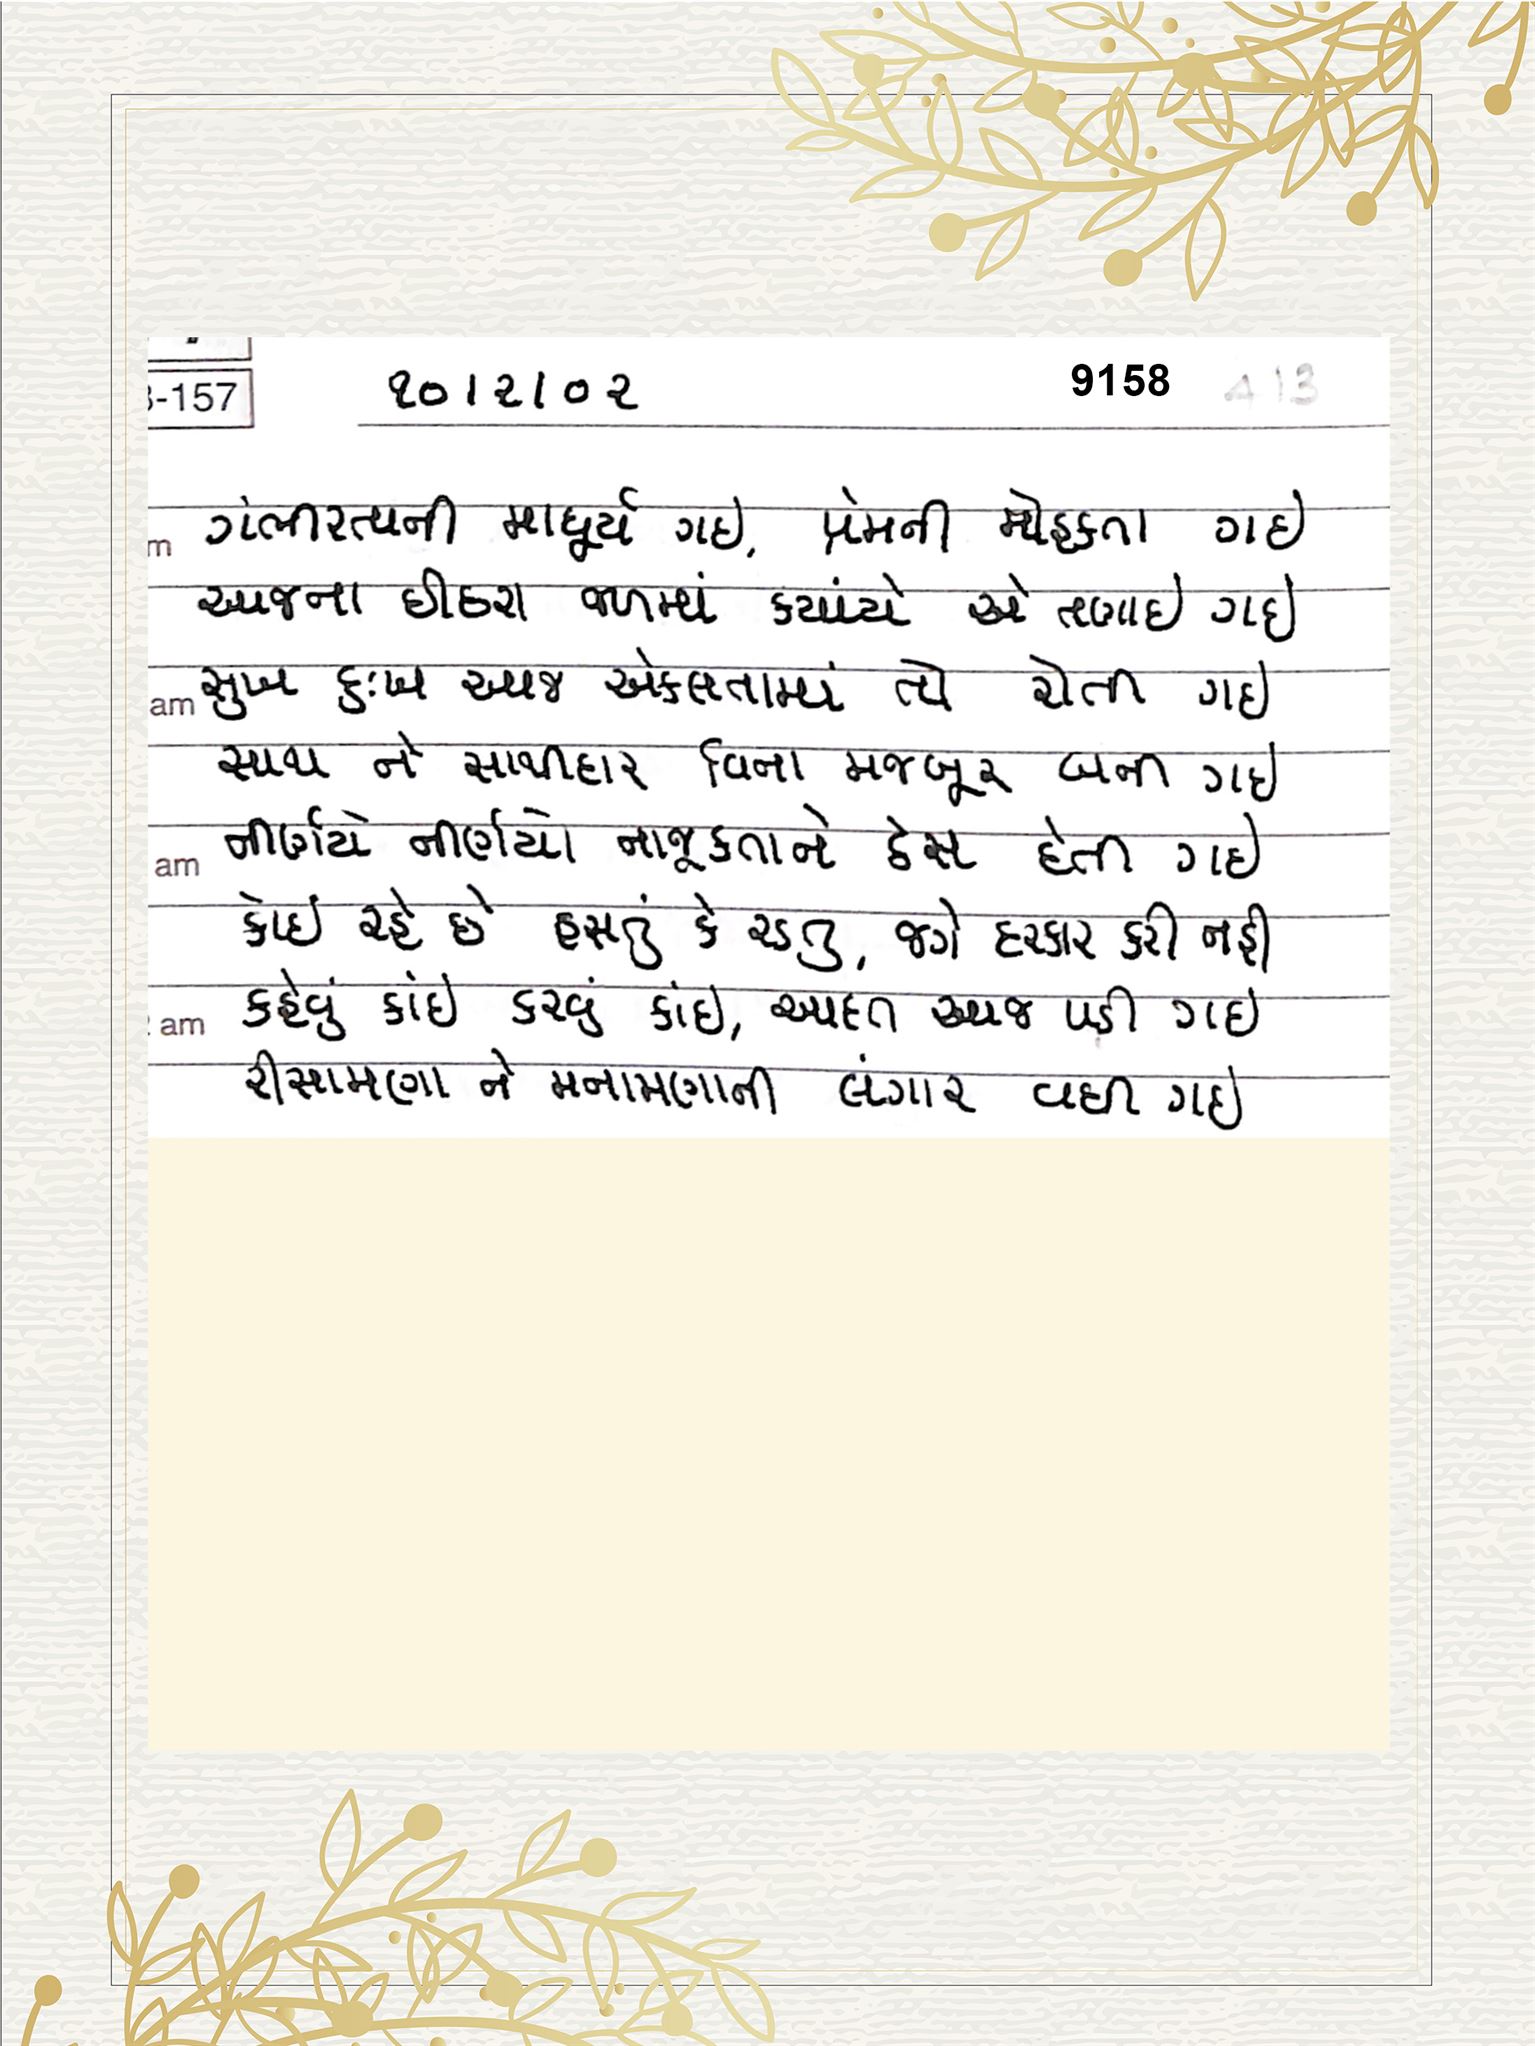 3-157 ૧૦।૨।૦૨ 9158 413
ગંભીરત્યની માધૂર્ય ગઇ, પ્રેમની મોહકતા ગઇ
આજના છીછરા જળમાં ક્યાંયે એ તણાઇ ગઇ
am સુખ દુઃખ આજ એકલતામાં તો રોતી ગઇ
સાથ ને સાથીદાર વિના મજબૂર બની ગઇ
am નીર્ણયે નીર્ણયો નાજૂકતાને ઠેસ દેતી ગઇ
કોઇ રહે છે હસતું કે રડતુ, જગે દરકાર કરી નહી
am કહેવું કાંઇ કરવું કાંઇ, આદત આજ પડી ગઇ
રીસામણા ને મનામણાની લંગાર વધી ગઇ